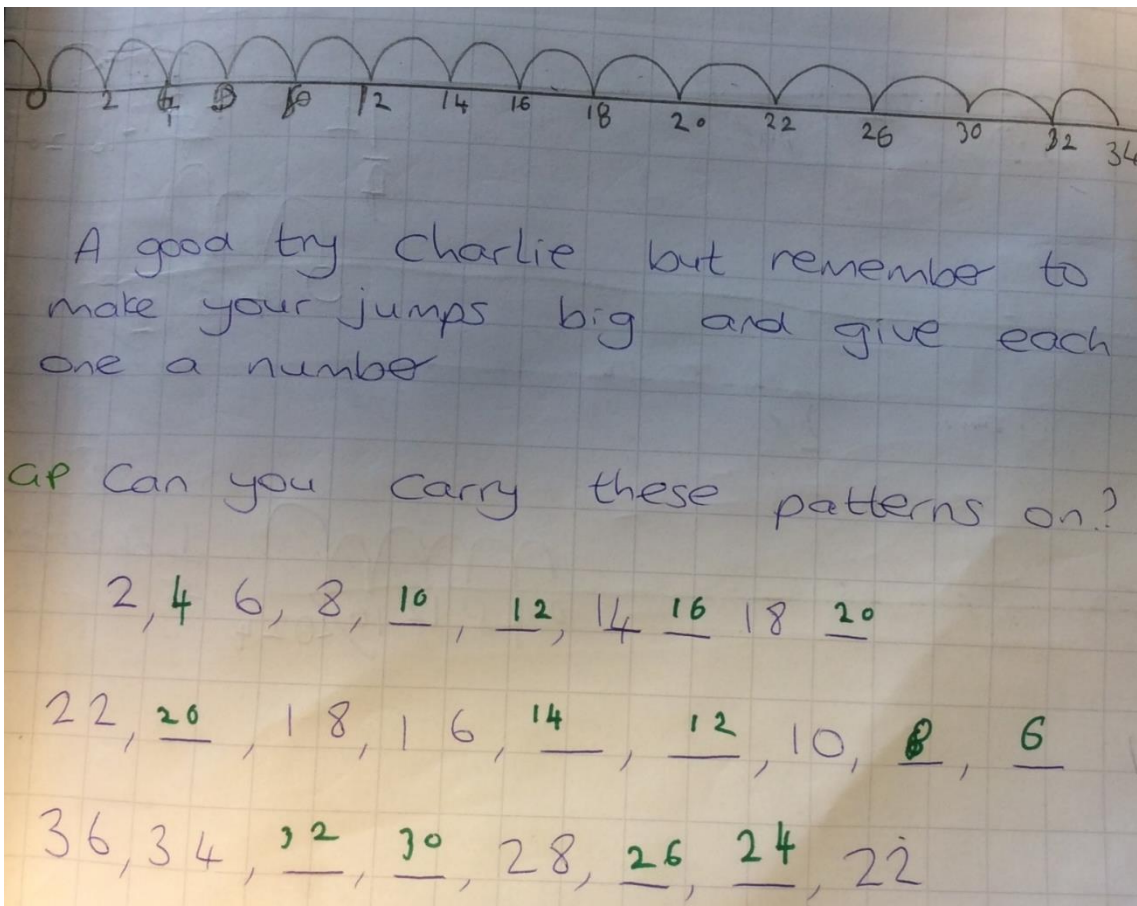 0 2 4 8 10 12 14 16 18 20 22 26 30 32 34
A good try Charlie but remember to
make your jumps big and give each
one a number
GP Can you carry these patterns on?
2, 4 6, 8, 10, 12, 14 16 18 20
22, 20, 18, 16, 14, 12, 10, 8, 6
36, 34, 32, 30, 28, 26, 24, 22